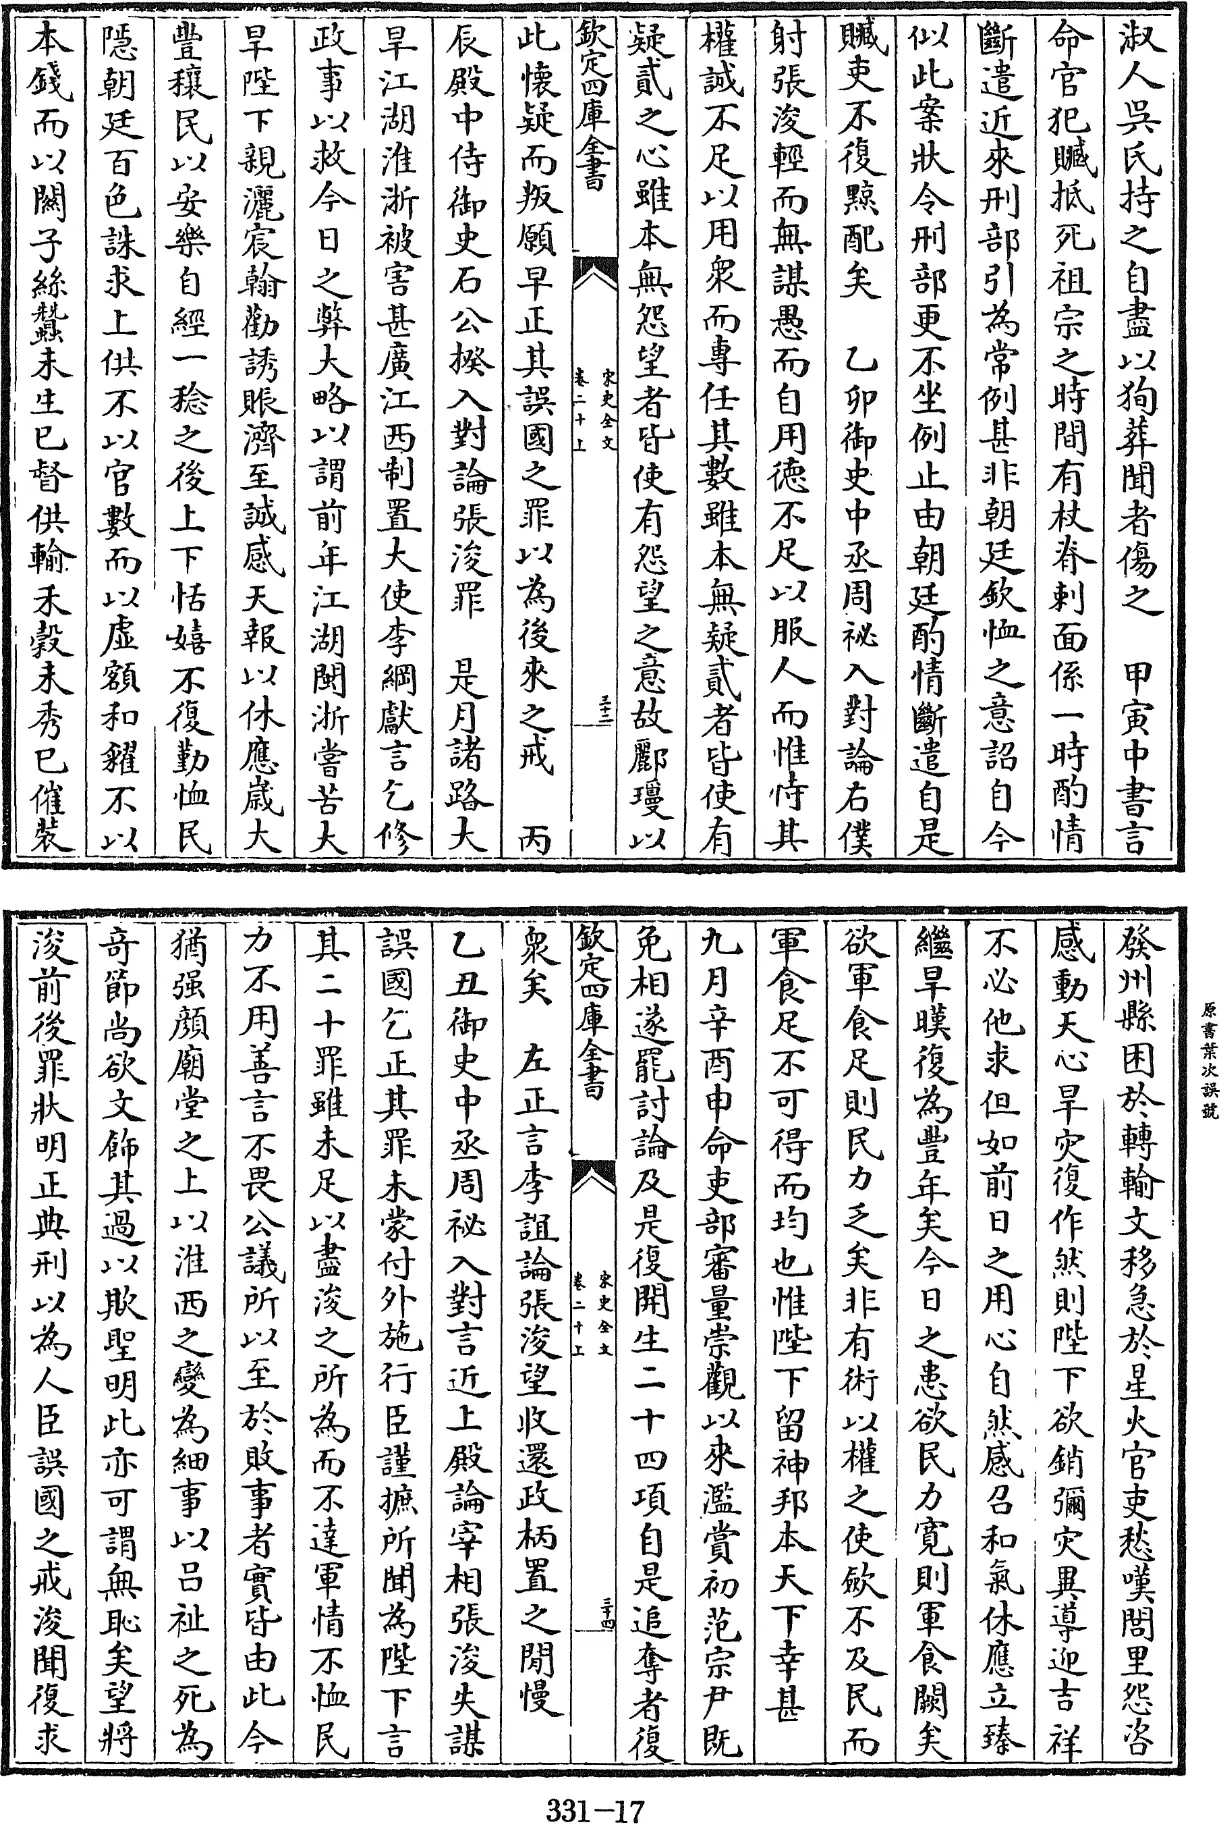 淑人吳氏持之自盡以狥葬聞者傷之　甲寅中書言
命官犯贓抵死祖宗之時間有杖脊刺面係一時酌情
斷遣近來刑部引為常例甚非朝廷欽恤之意詔自今
似此案狀令刑部更不坐例止由朝廷酌情斷遣自是
贓吏不復黥配矣　乙卯御史中丞周祕入對論右僕
射張浚輕而無謀愚而自用德不足以服人而惟恃其
權誠不足以用衆而專任其數雖本無疑貳者皆使有
疑貳之心雖本無怨望者皆使有怨望之意故酈瓊以
欽定四庫全書
宋史全文
卷二十上
三十三
此懷疑而叛願早正其誤國之罪以為後來之戒　丙
辰殿中侍御史石公揆入對論張浚罪　是月諸路大
旱江湖淮浙被害甚廣江西制置大使李綱獻言乞修
政事以救今日之弊大略以謂前年江湖閩浙嘗苦大
旱陛下親灑宸翰勸誘賑濟至誠感天報以休應歲大
豐穰民以安樂自經一稔之後上下恬嬉不復勤恤民
隱朝廷百色誅求上供不以官數而以虛額和糴不以
本錢而以關子絲蠶未生已督供輸禾穀未秀已催裝
發州縣困於轉輸文移急於星火官吏愁嘆閭里怨咨
感動天心旱灾復作然則陛下欲銷彌灾異導迎吉祥
不必他求但如前日之用心自然感召和氣休應立臻
繼旱暵復為豐年矣今日之患欲民力寛則軍食闕矣
欲軍食足則民力乏矣非有術以權之使歛不及民而
軍食足不可得而均也惟陛下留神邦本天下幸甚
九月辛酉申命吏部審量崇觀以來濫賞初范宗尹既
免相遂罷討論及是復開生二十四項自是追奪者復
欽定四庫全書
宋史全文
卷二十上
三十四
衆矣　左正言李誼論張浚望收還政柄置之閒慢
乙丑御史中丞周祕入對言近上殿論宰相張浚失謀
誤國乞正其罪未蒙付外施行臣謹摭所聞為陛下言
其二十罪雖未足以盡浚之所為而不達軍情不恤民
力不用善言不畏公議所以至於敗事者實皆由此今
猶强顔廟堂之上以淮西之變為細事以呂祉之死為
奇節尚欲文飾其過以欺聖明此亦可謂無恥矣望將
浚前後罪狀明正典刑以為人臣誤國之戒浚聞復求
原書葉次誤號
331-17